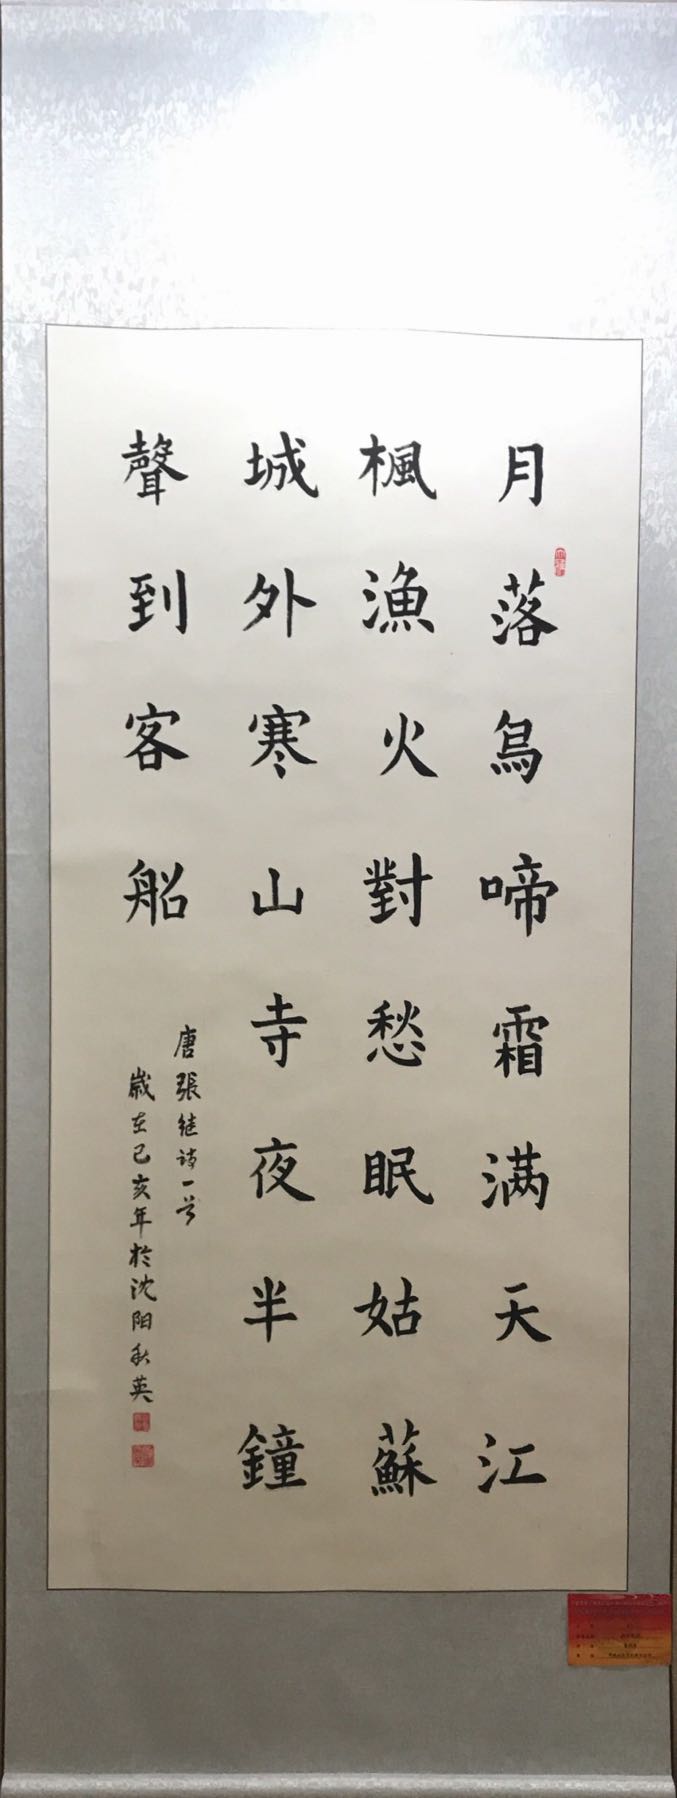 月落烏啼霜满天江
楓漁火對愁眠姑蘇
城外寒山寺夜半鐘
聲到客船
唐張继诗一首
歲在己亥年於沈阳秋英